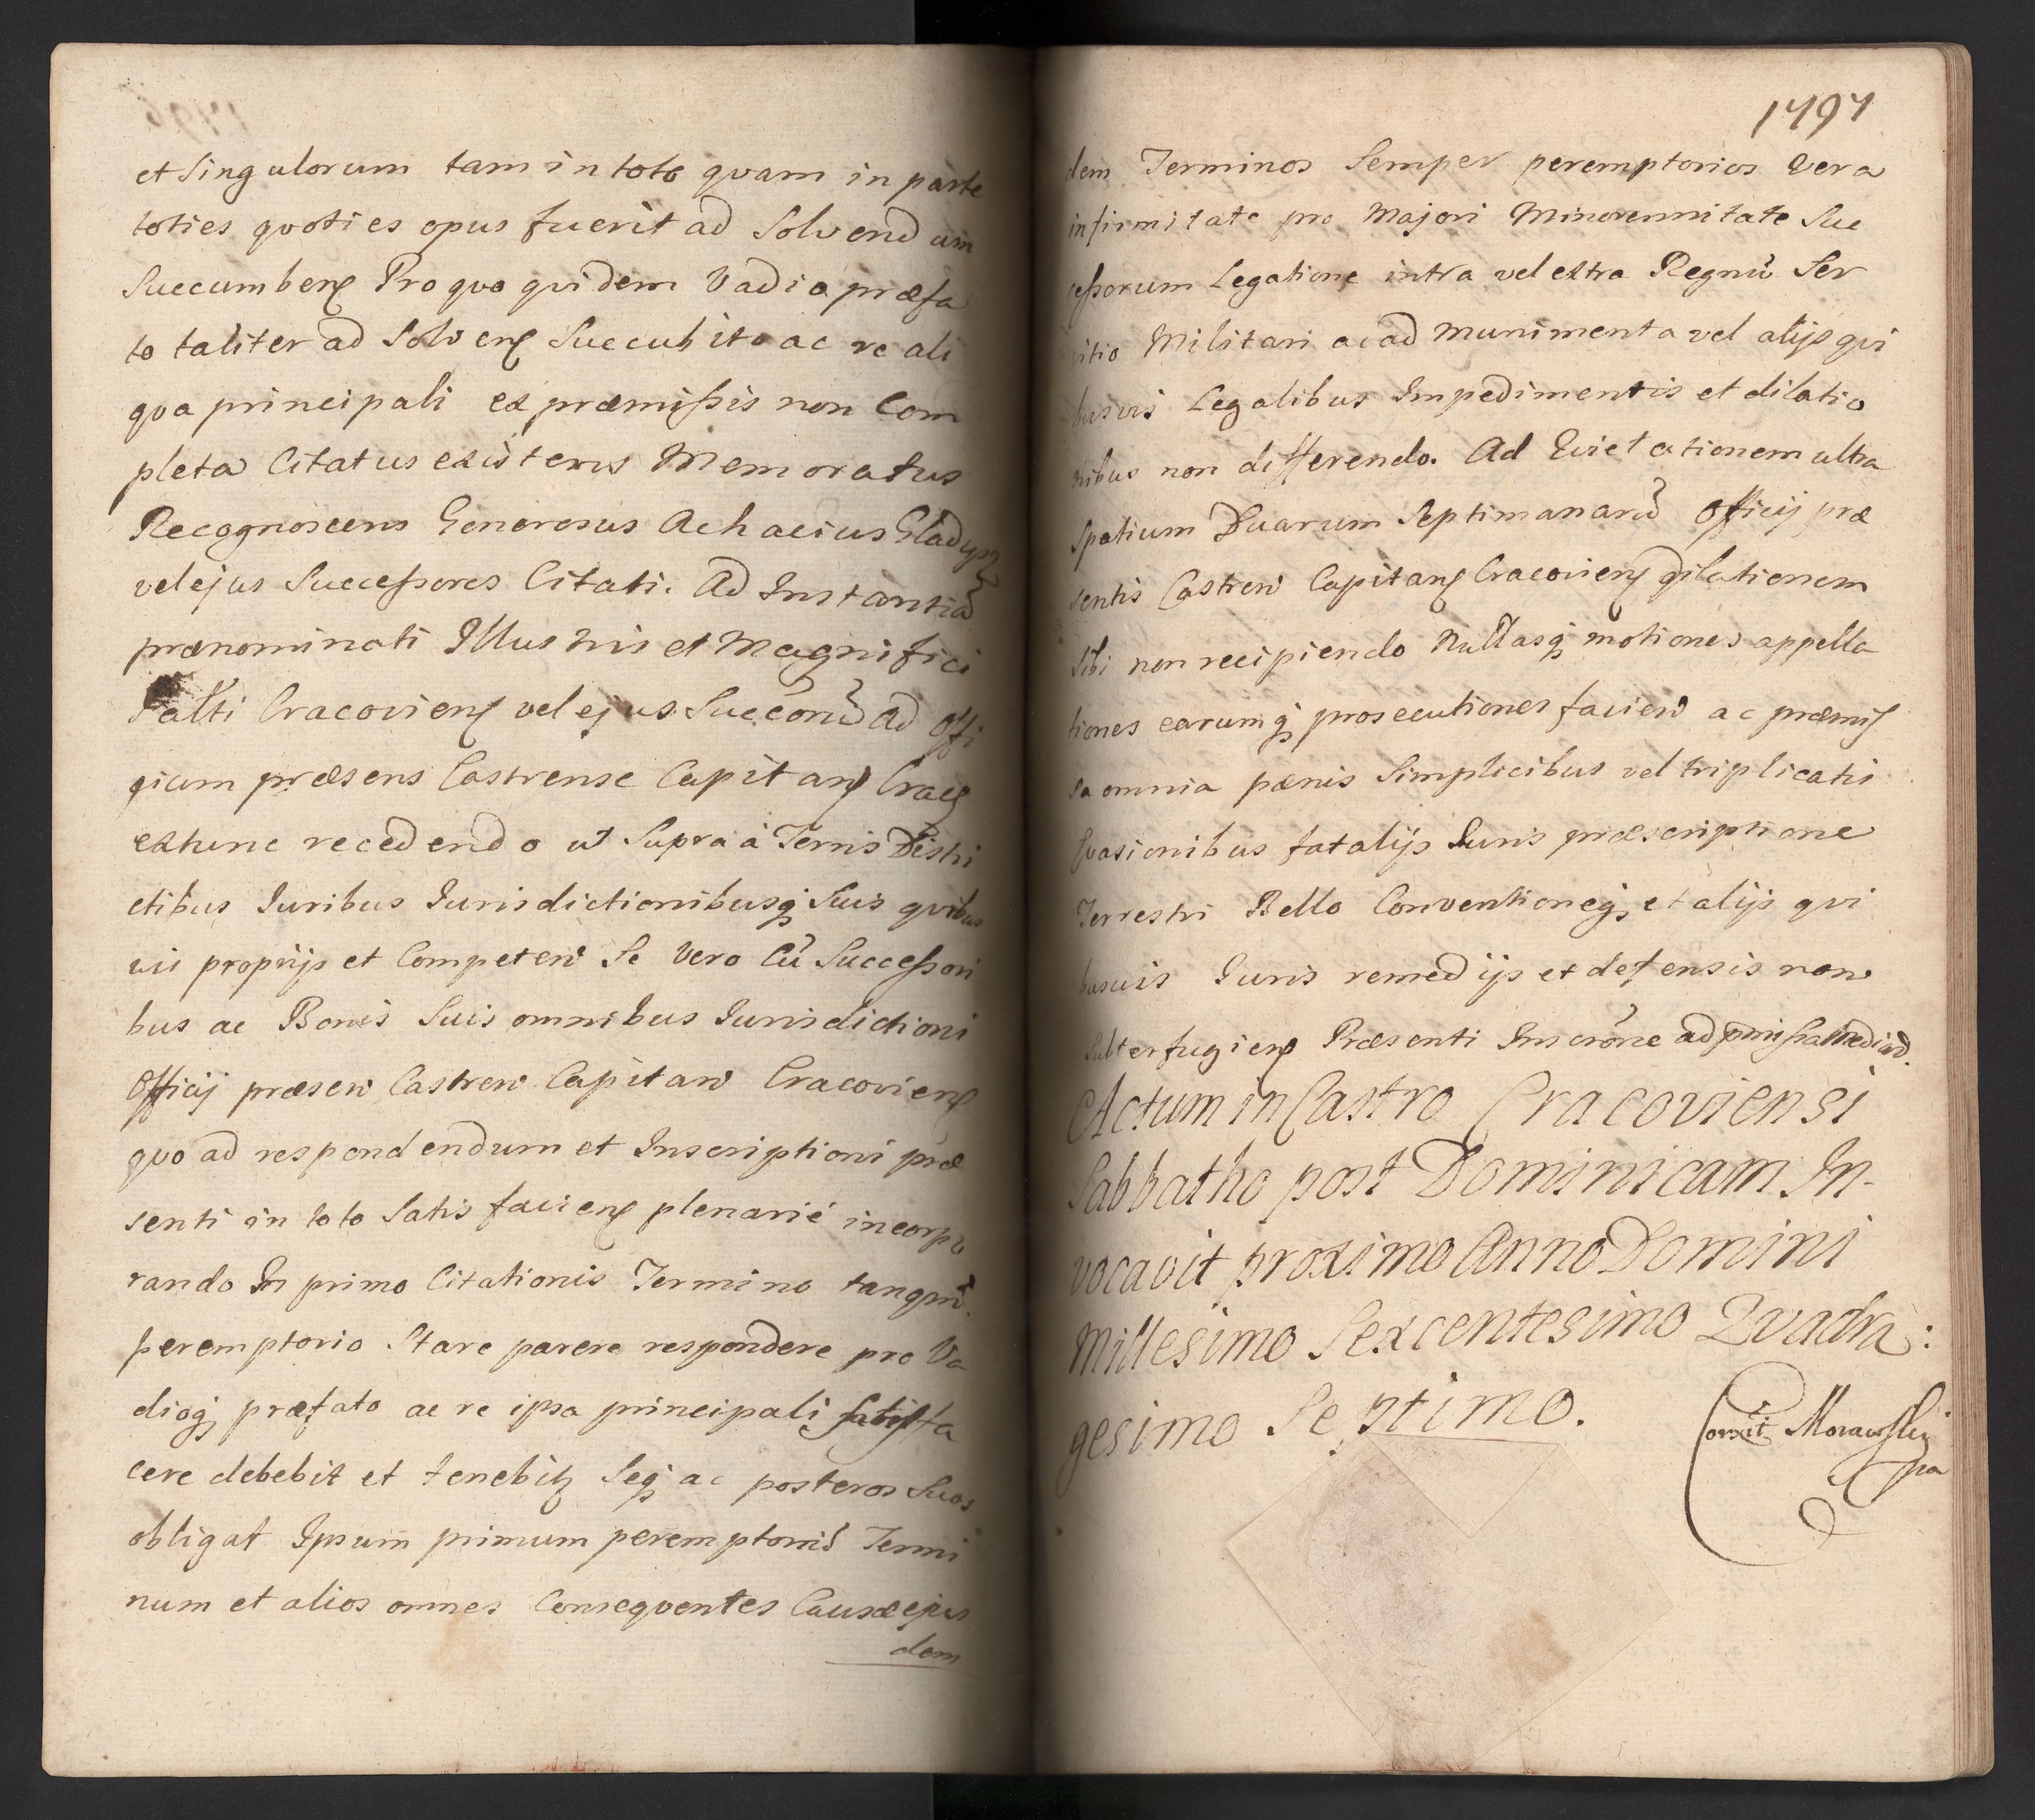 et Singulorum tam in toto qvam in parte
toties qvoties opus fuerit ad Solvendum
Succumben Pro qvo qvidem Vadio præfa
to taliter ad Solven Succubito ac re ali
qva principali ex præmissis non Com
pleta Citatus existens Memoratus
Recognoscens Generosus Achacius Gladysz
vel ejus Successores Citati. Ad Instantiã
prænominati Illustris et Magnifici
Palti Cracovien vel ejus Succorũ ad Offi
cium præsens Castrense Capitan Crac
extunc recedendo ut Supra à Terris Distri
ctibus Iuribus Iurisdictionibusq Suis qvibus
vis proprijs et Competen Se vero Cũ Successori
bus ac Bonis Suis omnibus Iurisdictioni
Officij præsen Castren Capitan Cracovien
qvo ad respondendum et Inscriptioni præ
senti in toto Satis facien plenariè incorpo
rando In primo Citationis Termino tanqm̃
peremptorio Stare parere respondere pro Va
dioq præfato ac re ipsa principali satisfa
cere debebit et tenebit Seq ac posteros Suos
obligat Ipsum primum peremptoriũ Termi
num et alios omnes Conseqventes Causæ ejus
dem
1797
dem Terminos Semper peremptorios Vera
infirmitate pro Majori Minorennitate Suc
cessorum Legatione intra vel extra Regnũ Ser
vitio Militari ac ad Munimenta vel alijs qvi
busvis Legalibus Impedimentis et dilatio
nibus non differendo. Ad Evictationem ultra
Spatium Duarum Septimanarũ Officij præ
sentis Castren Capitan Cracovien dilationem
Sibi non recipiendo Nullasq motiones appella
tiones earumq prosecutiones facien ac præmis
sa omnia pænis Simplicibus vel triplicatis
Evasionibus fatalijs Iuris præscriptione
Terrestri Bello Conventioneq et alijs qvi
busvis Iuris remedijs et defensis non
Subterfugien Præsenti Inscrõne ad pmissa mediañ.
Actum in Castro Cracoviensi
Sabbatho post Dominicam In-
vocavit proximo Anno Domini
Millesimo Sexcentesimo Qvadra:
gesimo Septimo.
Correxit Morawski